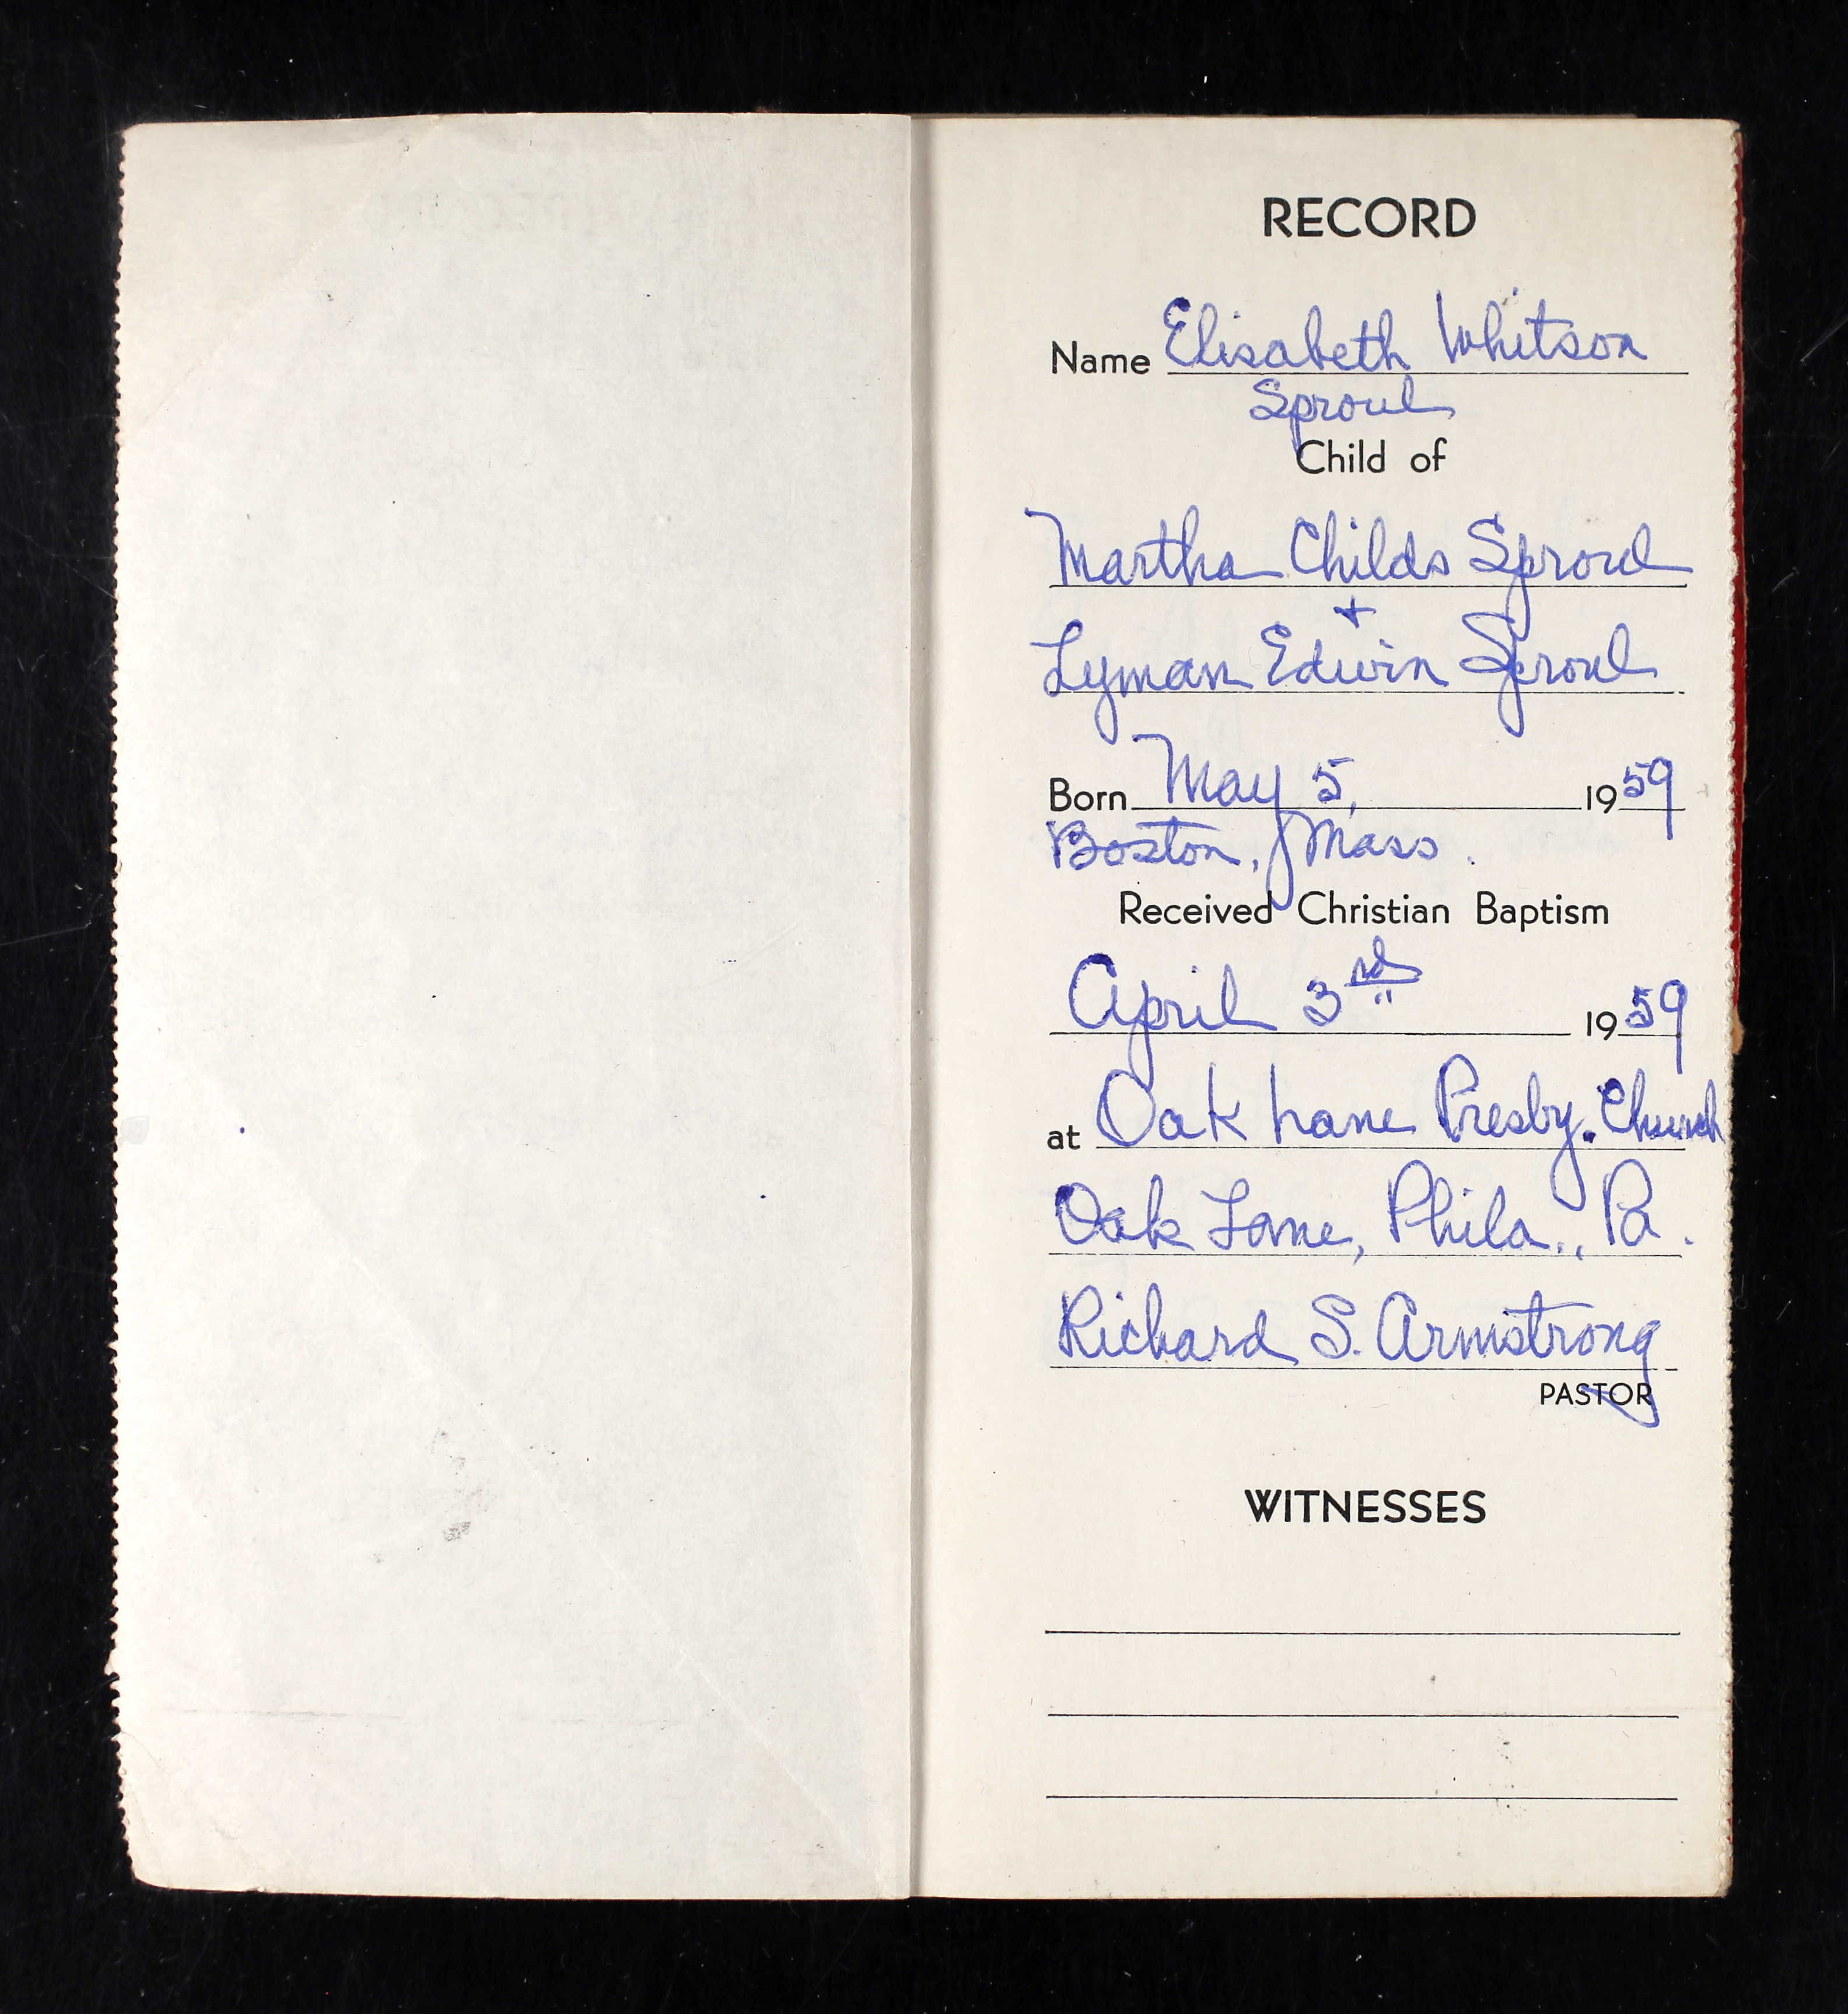 RECORD
Name Elisabeth Whitson
Sproul
Child of
Martha Childs Sproul
+
Lyman Edwin Sproul
Born May 5, 1959
Boston, Mass.
Received Christian Baptism
April 3rd 1959
at Oak Lane Presby. Church
Oak Lane, Phila., Pa.
Richard S. Armstrong
PASTOR
WITNESSES